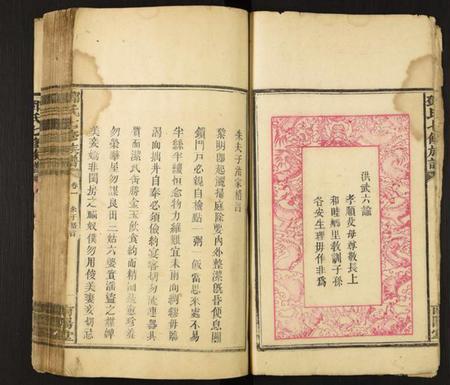 洪武六諭
孝順父母尊敬長上
和睦鄉里教訓子孫
各安生理毋作非為
朱夫子治家格言
黎明即起灑掃庭除要內外整潔既昏便息關
鎖門戶必親自檢點一粥一飯當思來處不易
半絲半縷恒念物力維艱宜未雨而綢繆毋臨
渴而掘井自奉必須儉約宴客切勿流連器具
質而潔瓦缶勝金玉飲食約而精園蔬愈珍羞
勿營華屋勿謀良田三姑六婆實淫盜之媒婢
美妾嬌非閨房之福奴僕勿用俊美妻妾切忌
卷一
南陽堂
氏七修族譜